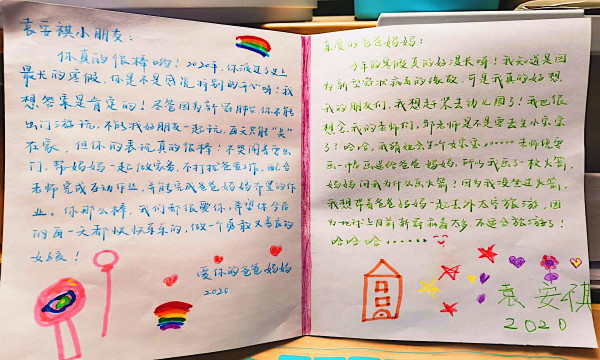 袁安祺小朋友：
你真的很棒哟！2020年，你渡过了史上
最长的寒假，你是不是感觉特别的开心呀！我
想答案是肯定的！尽管因为新冠肺炎，你不能
出门游玩，不能找好朋友一起玩，每天只能“宅”
在家，但你的表现真的很棒！不哭闹着要出
门，帮妈妈一起做家务，不打扰爸爸工作，配合
老师完成互动作业，并能完成爸爸妈妈布置的作
业。你那么棒，我们都很爱你，希望你今后
的每一天都快快乐乐的，做一个勇敢又善良的
女孩！
爱你的爸爸妈妈
2020
亲爱的爸爸妈妈：
今年的寒假真的好漫长呀！我知道是因
为新型冠状病毒的缘故，可是我真的好想
我的朋友们，我想赶紧去幼儿园了！我也很
想念我的老师们，邹老师是不是要去生小宝宝
了！哈哈，我猜她会生个女宝宝……老师说要
画一幅画送给爸爸妈妈，所以我画了一枚火箭，
妈妈问我为什么画火箭！因为我没坐过火箭，
我想带着爸爸妈妈一起去外太空旅游，因
为地球上目前新冠病毒太多，不适合旅游了！
哈哈哈……
袁安祺
2020